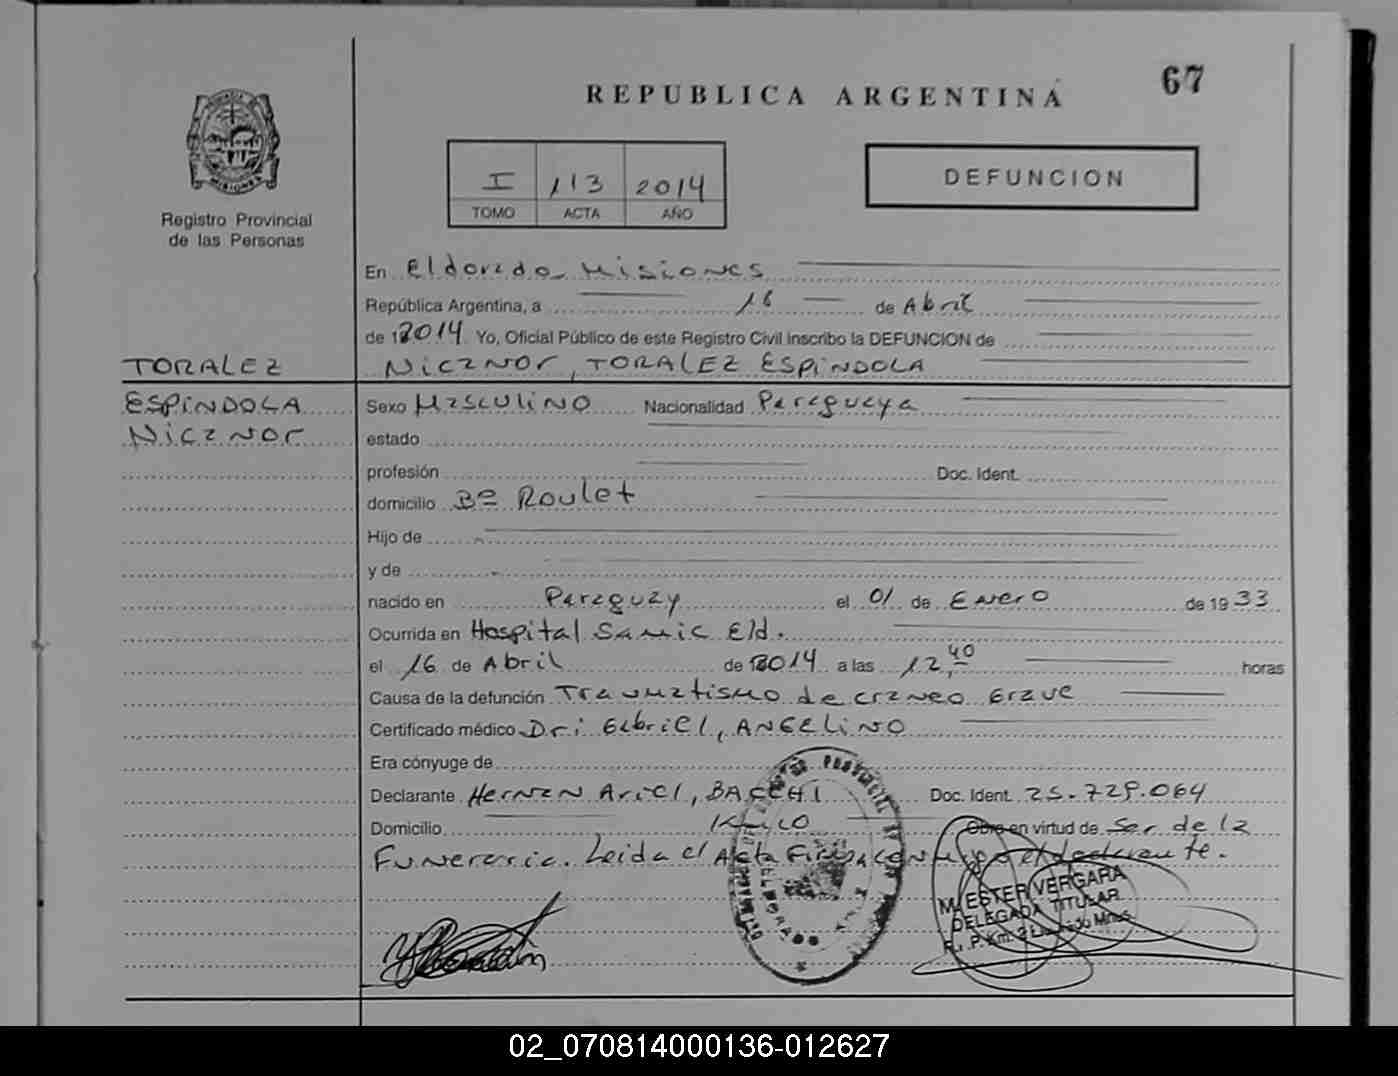 67
REPUBLICA ARGENTINA
Registro Provincial
de las Personas
I 113 2014
TOMO ACTA AÑO
DEFUNCION
En Eldorado - Misiones
República Argentina, a 16 de Abril
de 2014 Yo, Oficial Público de este Registro Civil inscribo la DEFUNCION de
Nicanor, TORALEZ ESPINDOLA
TORALEZ
ESPINDOLA
Nicanor
Sexo Masculino Nacionalidad Paraguaya
estado
profesión Doc. Ident.
domicilio Bº Roulet
Hijo de
y de
nacido en Paraguay el 01 de Enero de 1933
Ocurrida en Hospital Samic Eld.
el 16 de Abril de 2014 a las 12,40 horas
Causa de la defunción Traumatismo de craneo Grave
Certificado médico Dr: Gabriel, ANGELINO
Era cónyuge de
Declarante Hernan Ariel, BACCHI Doc. Ident. 25.729.064
Domicilio Km 10 Obra en virtud de Ser de la
Funeraria. Leida el Acta Firma conmigo el declarante.
M. ESTER VERGARA
DELEGADA TITULAR
ELDORADO
02_070814000136-012627